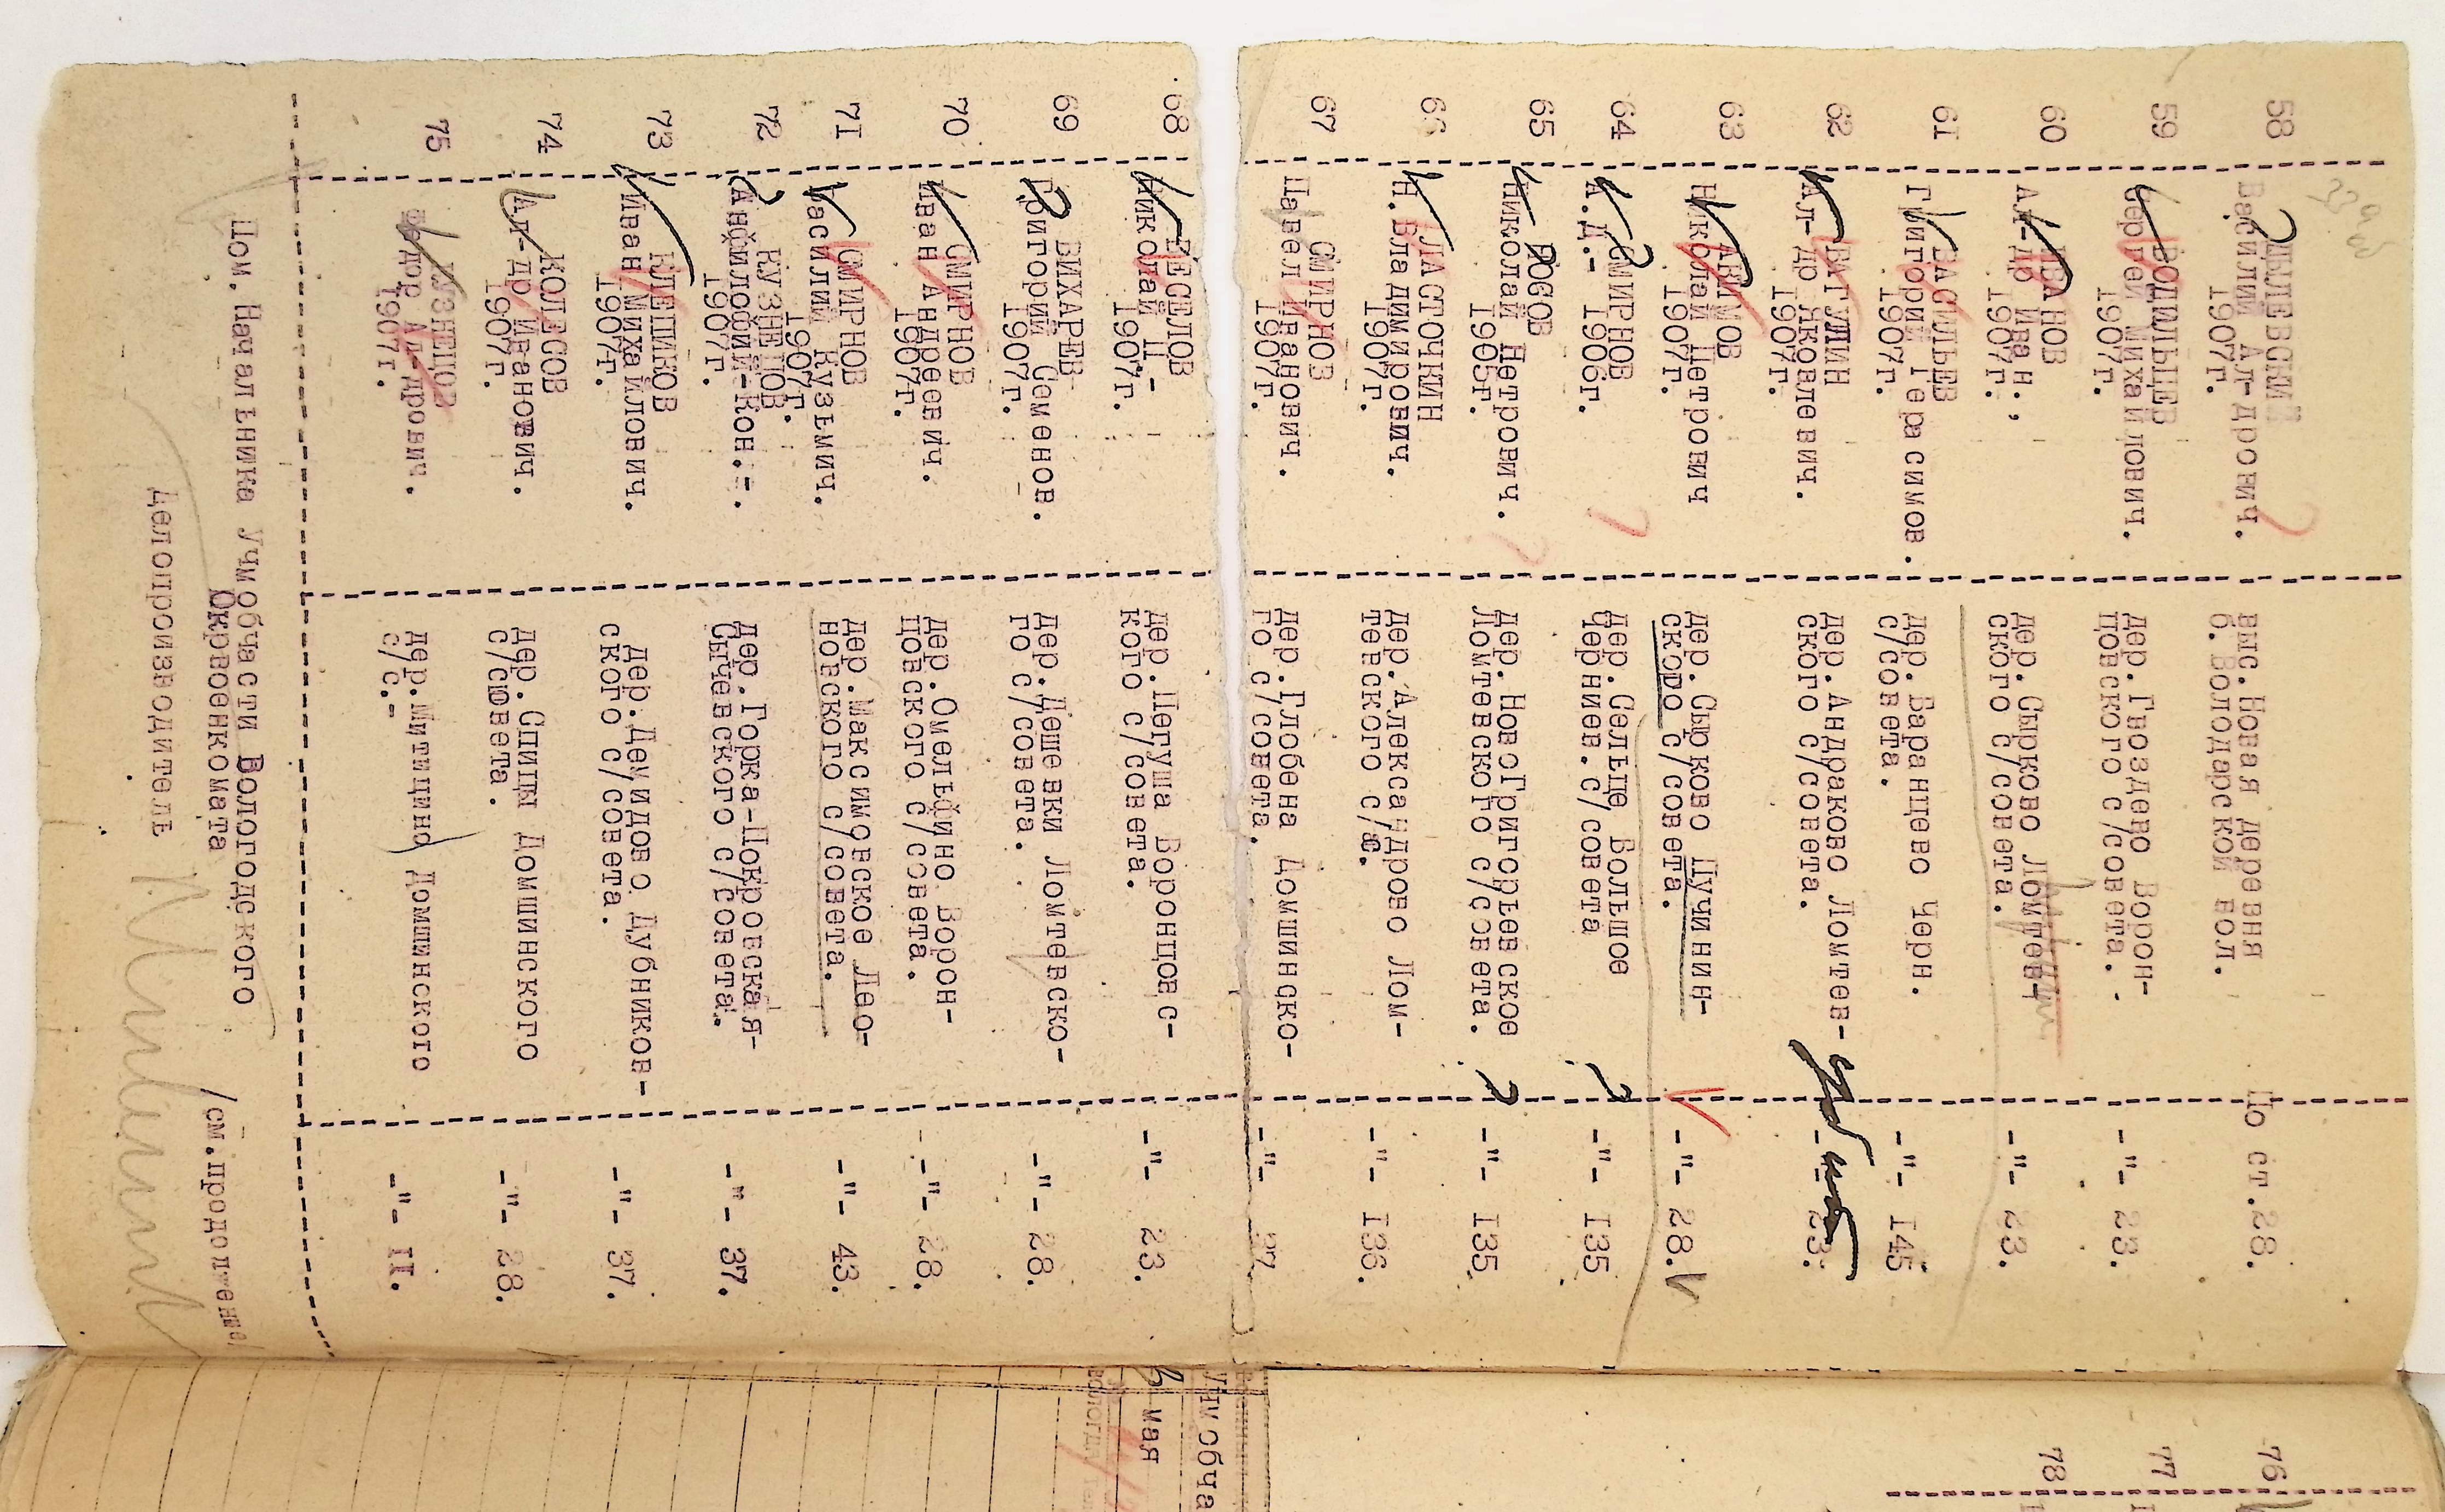 58
ЦЫЛЕВСКИЙ
Василий Ал-дрович.
1907г.
выс.Новая деревня
б.Володарской вол.
По ст.28.
59
ВОДИЛЬЦЕВ
Сергей Михайлович.
1907г.
дер.Гвоздево Ворон-
цовского с/совета.
-"- 23.
60
ИВАНОВ
Ал-др Иван.,
1907г.
дер.Сырково Ломтев-
ского с/совета.
-"- 23.
6I
ВАСИЛЬЕВ
Григорий Герасимов.
1907г.
дер.Баранцево Черн.
с/совета.
-"- I45
62
ВАГУЛИН
Ал-др Яковлевич.
1907г.
дер.Андраково Ломтев-
ского с/совета.
-"- 23.
63
АКИМОВ
Николай Петрович
1907г.
дер.Сырково Пучинин-
ского с/совета.
-"- 28.V
64
СМИРНОВ
А.Д.-
1906г.
дер.Сельце Большое
Черниев.с/совета
?
-"- I35
65
РОСОВ
Николай Петрович.
1905г.
дер.НовоГригорьевское
Ломтевского с/совета.
?
-"- I35.
66
ЛАСТОЧКИН
Н.Владимирович.
1907г.
дер.Александрово Лом-
тевского с/с.
-"- I36.
67
СМИРНОВ
Павел Иванович.
1907г.
дер.Глобена Домшинско-
го с/совета.
-"- 37.
68
ВЕСЕЛОВ
Николай П.-
1907г.
дер.Пегуша Воронцовс-
кого с/совета.
-"- 23.
69
ВИХАРЕВ
Григорий Семенов.
1907г.
дер.Дешевки Ломтевско-
го с/совета.
-"- 28.
70
СМИРНОВ
Иван Андреевич.
1907г.
дер.Омельфино Ворон-
цовского с/совета.
-"- 28.
7I
СМИРНОВ
Василий Кузьмич.
1907г.
дер.Максимовское Лео-
новского с/совета.
-"- 43.
72
КУЗНЕЦОВ
Анфилофий-Кон.-.
1907г.
дер.Горка-Покровская-
Сычевского с/совета.
-"- 37.
73
КЛЕЩИКОВ
Иван Михайлович.
1907г.
дер.Демидово Дубников-
ского с/совета.
-"- 37.
74
КОЛЕСОВ
Ал-др Иванович.
1907г.
дер.Спицы Домшинского
с/совета.
-"- 28.
75
КУЗНЕЦОВ
Федор Ал-дрович.
1907г.
дер.Митицино Домшинского
с/с.-
-"- II.
Пом.Начальника Учмобчасти Вологодского
Окрвоенкомата
/см.продолжение/
Делопроизводитель
76
77
78
Учмобча
мая